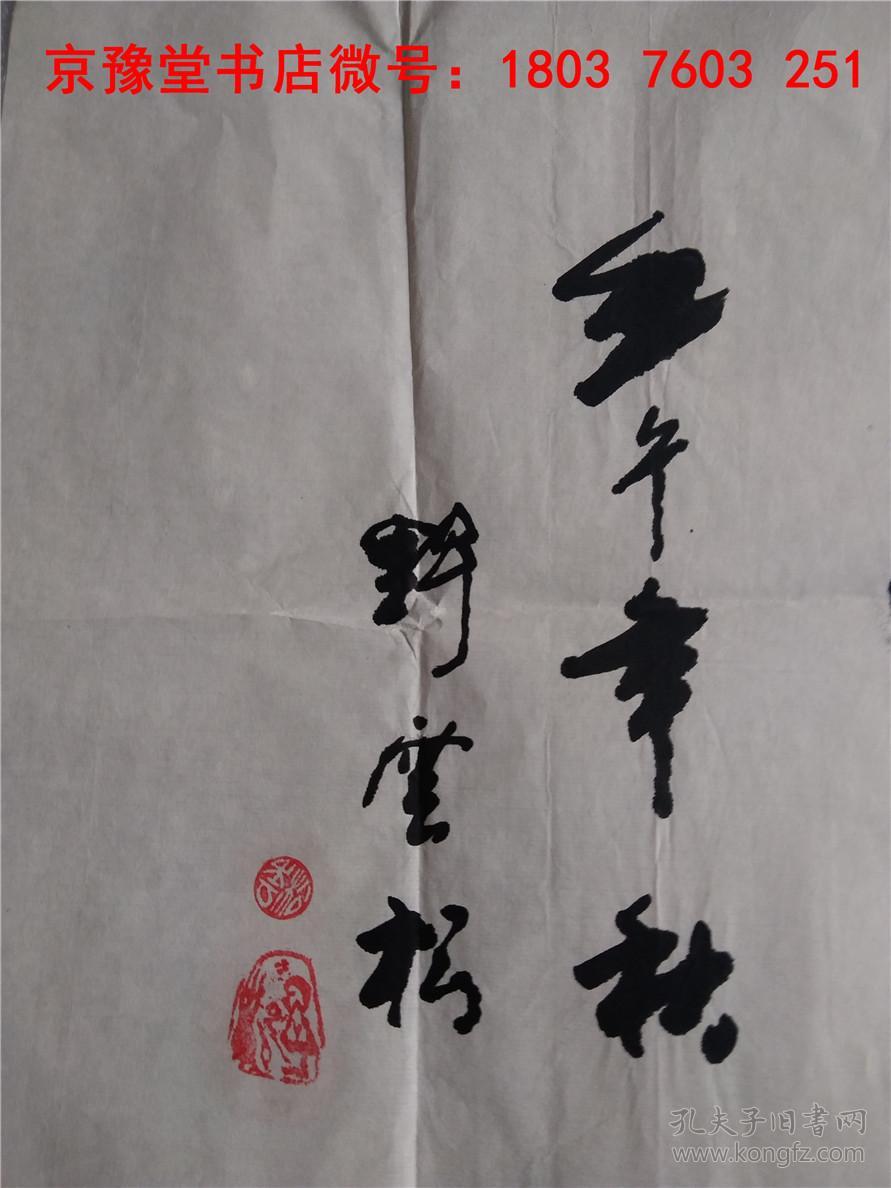 京豫堂书店微号：1803 7603 251
午年秋
雲松
孔夫子旧书网
www.kongfz.com